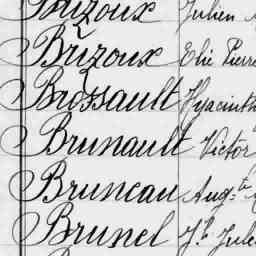 Brizoux Julien
Brizoux Elie Pierre
Brossault Hyacinth
Brunault Victor
Bruneau Aug.te
Brunel J.h Jules